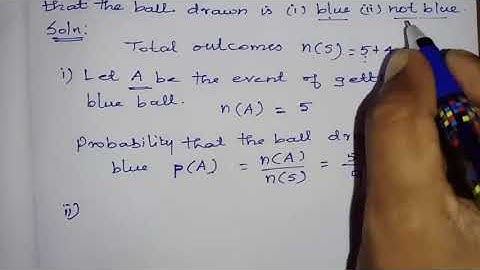 that the ball drawn is (i) blue (ii) not blue.
Soln:
Total outcomes n(S) = 5+4
i) Let A be the event of gett
blue ball. n(A) = 5
Probability that the ball dr
blue p(A) = n(A)/n(S) = 5/
ii)